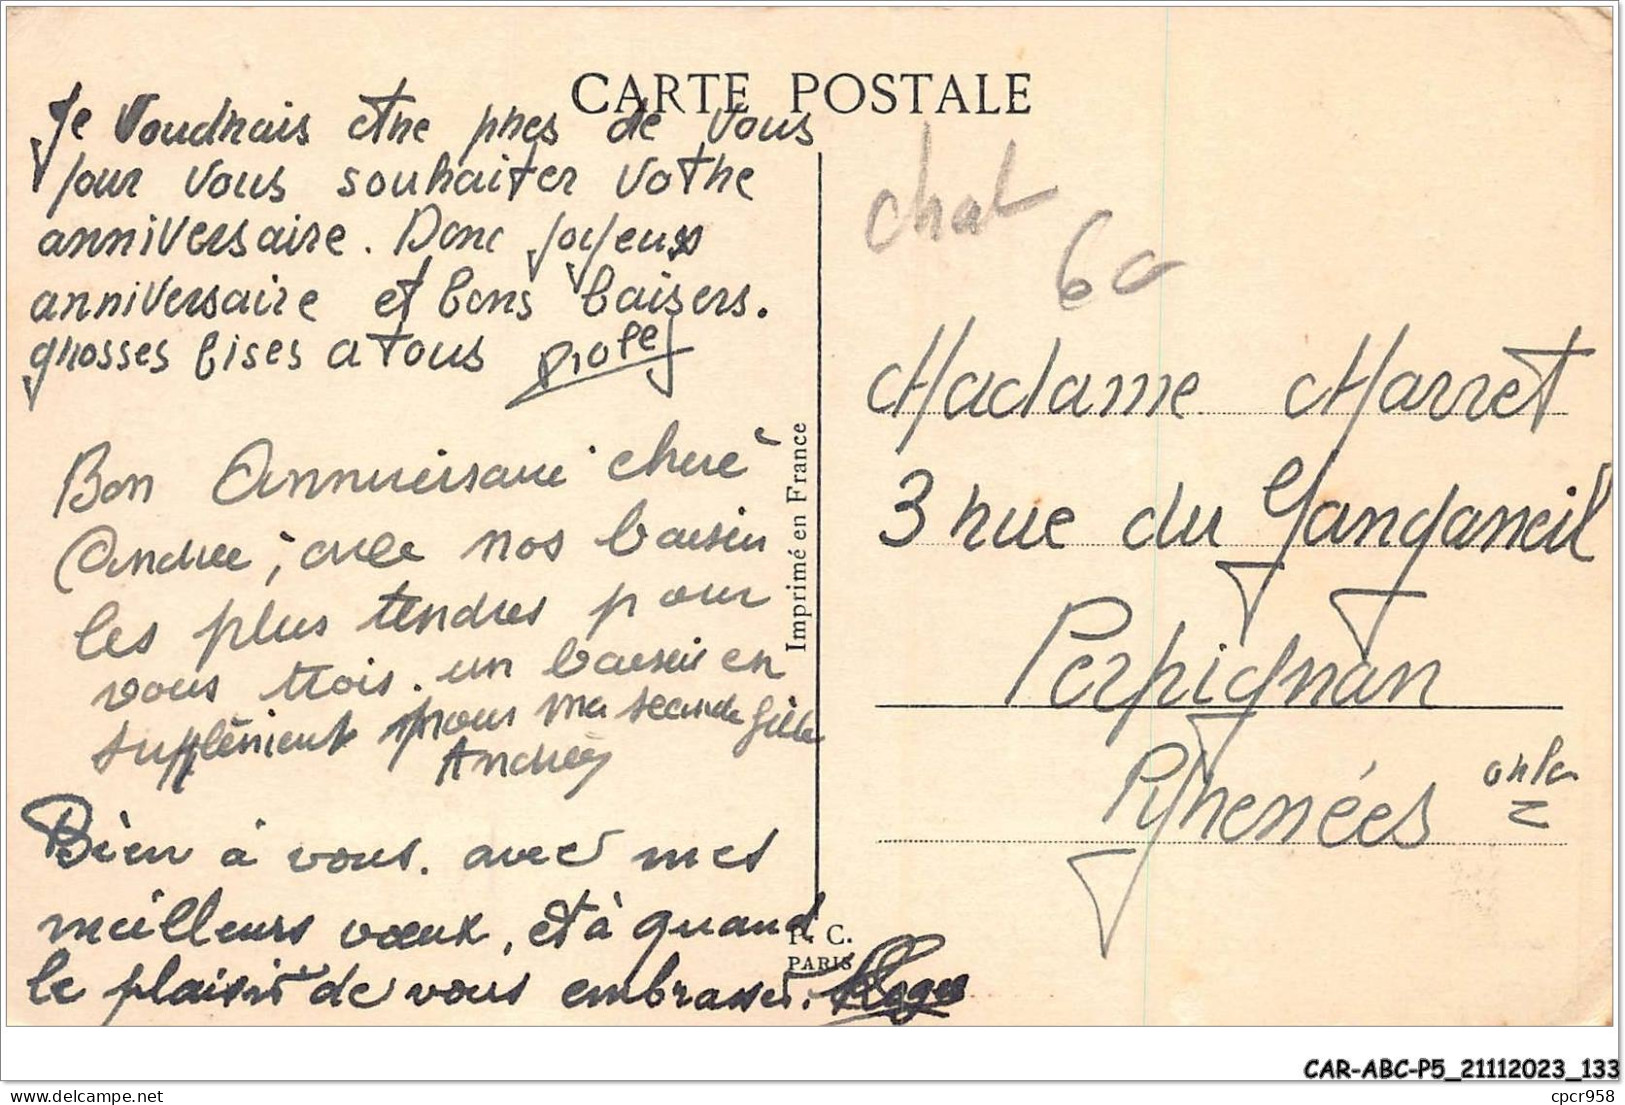 CARTE POSTALE
Je voudrais etre pres de vous
pour vous souhaiter votre
anniversaire. Donc joyeux
anniversaire et bons baisers.
grosses bises a tous
Bon Anniversaire chère
Andrée, avec nos baisers
les plus tendres pour
vous trois. un baiser en
supplément pour ma seconde fille
Andrée
Bien à vous. avec mes
meilleurs vœux, et à quand
le plaisir de vous embrasser. Roger
Imprimé en France
P. C.
PARIS
chat
60
Madame Marret
3 rue du
Perpignan
Pyrenées orles
CAR-ABC-P5_21112023_133
delcampe.net
cpcr958